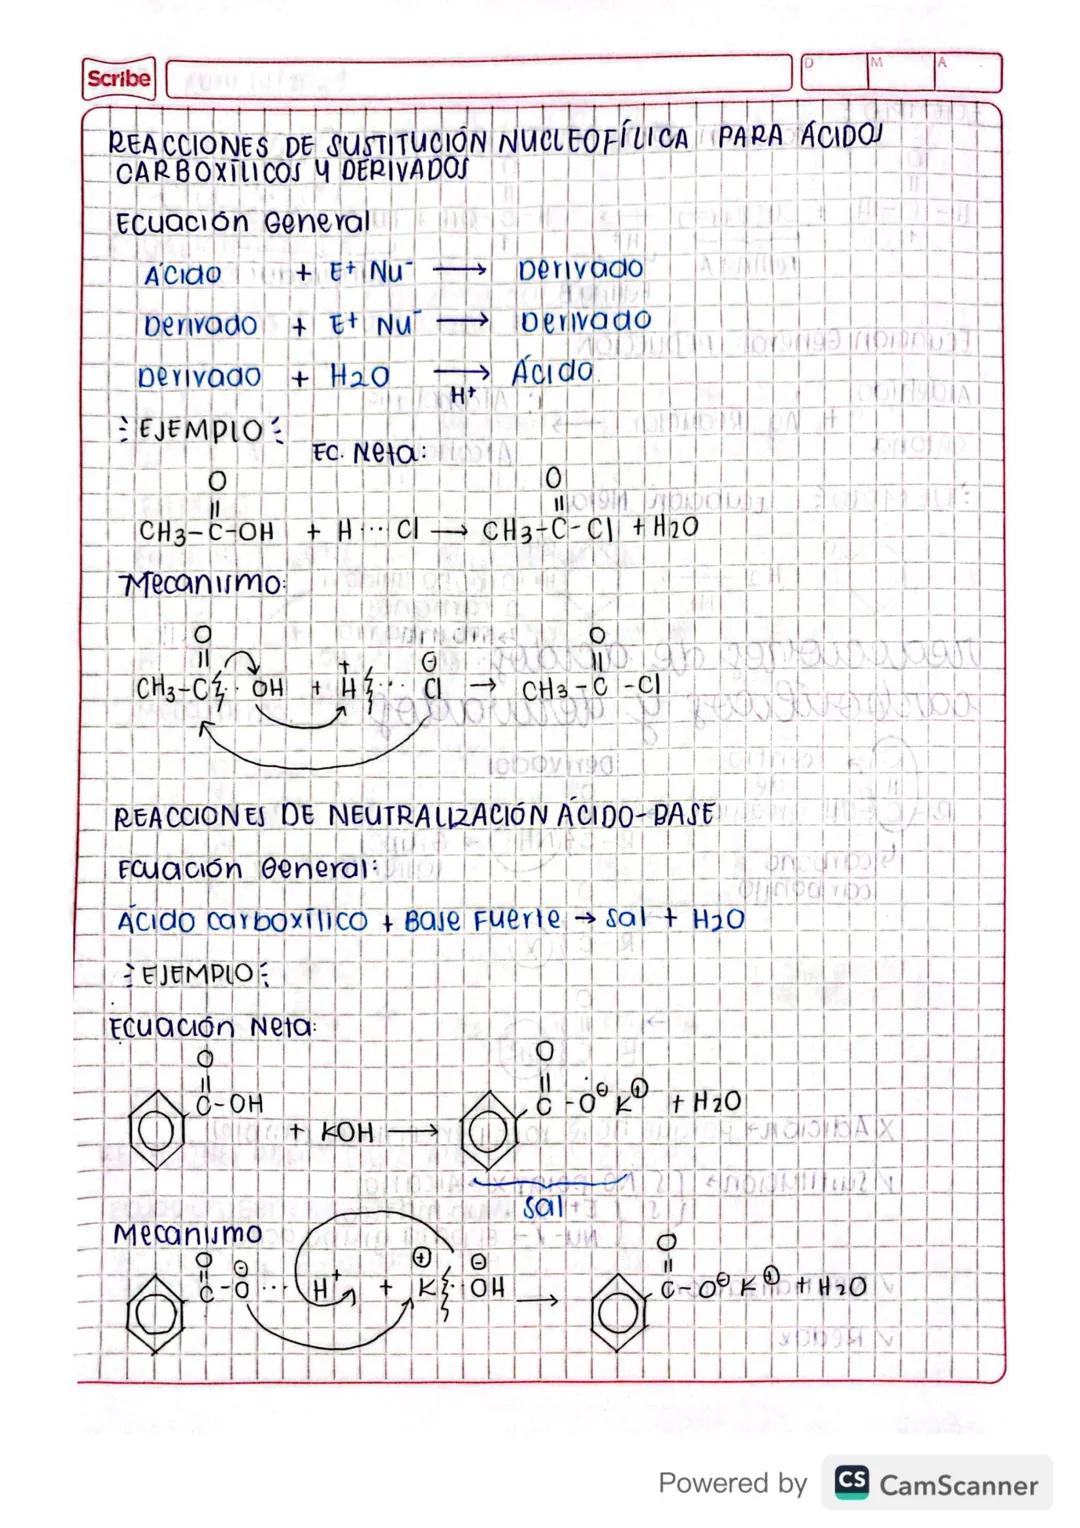 Scribe
D M A
REACCIONES DE SUSTITUCIÓN NUCLEOFÍLICA PARA ÁCIDOS
CARBOXÍLICOS Y DERIVADOS
Ecuación General
Ácido + E+ Nu- → Derivado
Derivado + E+ Nu- → Derivado
Derivado + H2O → Ácido
H+
EJEMPLO
Ec. Neta:
O O
|| ||
CH3-C-OH + H ··· Cl → CH3-C-Cl + H2O
Mecanismo:
O O
|| + ⊖ ||
CH3-C · OH + H ··· Cl → CH3-C-Cl
REACCIONES DE NEUTRALIZACIÓN ÁCIDO-BASE
Ecuación General:
Ácido carboxílico + Base Fuerte → sal + H2O
EJEMPLO
Ecuación Neta:
O O
|| ||
C-OH C-O⊖ K⊕ + H2O
+ KOH →
sal
Mecanismo
O ⊖ ⊕ ⊖ O
|| ||
C-O ··· H+ + K · OH → C-O⊖ K⊕ + H2O
Powered by CS CamScanner